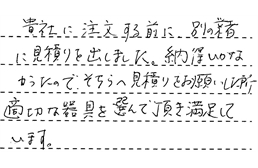 貴社に注文する前に 別の業者
に見積りを出しました。納得いかな
かったので、そちらへ見積りをお願いした所
適切な器具を選んで頂き満足して
います。